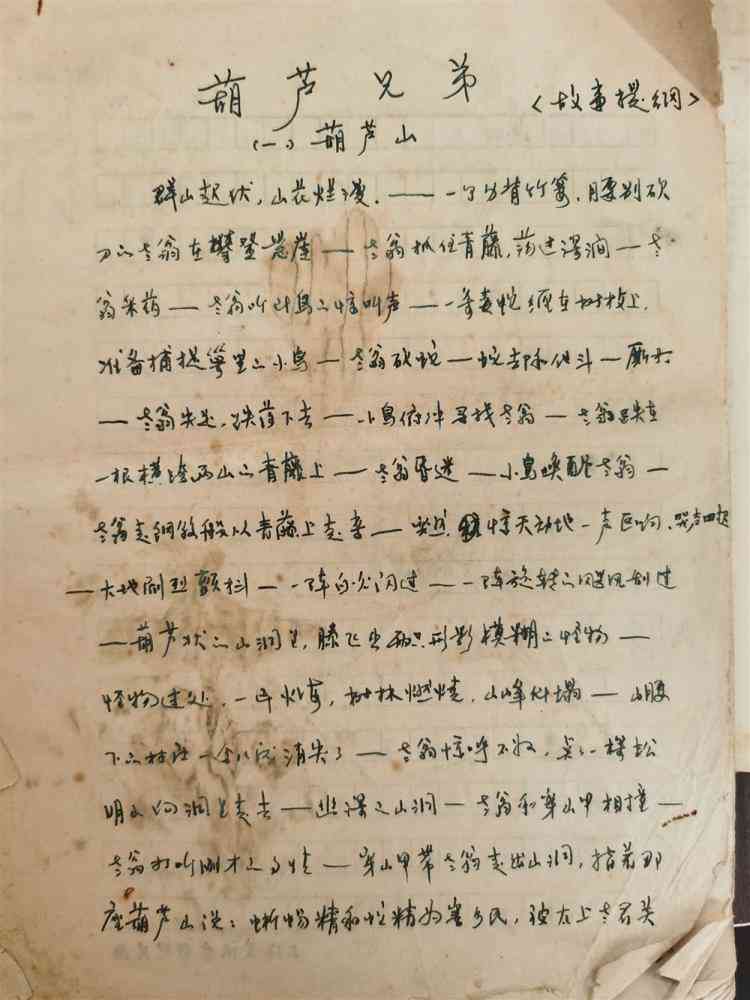 葫芦兄弟 〈故事提纲〉
(一) 葫芦山
群山起伏,山花烂漫。——一个身背竹篓,腰别砍
刀的老翁在攀登悬崖——老翁抓住青藤,荡过深涧—老
翁采药—老翁听到鸟的惊叫声——一条毒蛇缠在树枝上,
准备捕捉巢里的小鸟—老翁砍蛇—蛇却和他斗—厮打
—老翁失足,跌落下去——小鸟俯冲寻找老翁—老翁跌在
一根横跨两山的青藤上——老翁昏迷——小鸟唤醒老翁—
老翁走钢丝般从青藤上走来—突然,惊天动地一声巨响,哭声四起
—大地剧烈颤抖——一阵白光闪过——一阵旋转的飓风刮过
—葫芦状的山洞里,腾飞出形影模糊的怪物—
怪物过处,一片火海,树林燃烧,山峰倒塌—山腰
下的村庄一会儿就消失了——老翁惊呼不好,点一棵松
明火向洞里走去——幽深的山洞—老翁和穿山甲相撞—
老翁打听刚才的事情—穿山甲带老翁走出山洞,指着那
座葫芦山说:蜥蜴精和蛇精为害乡民,被太上老君关